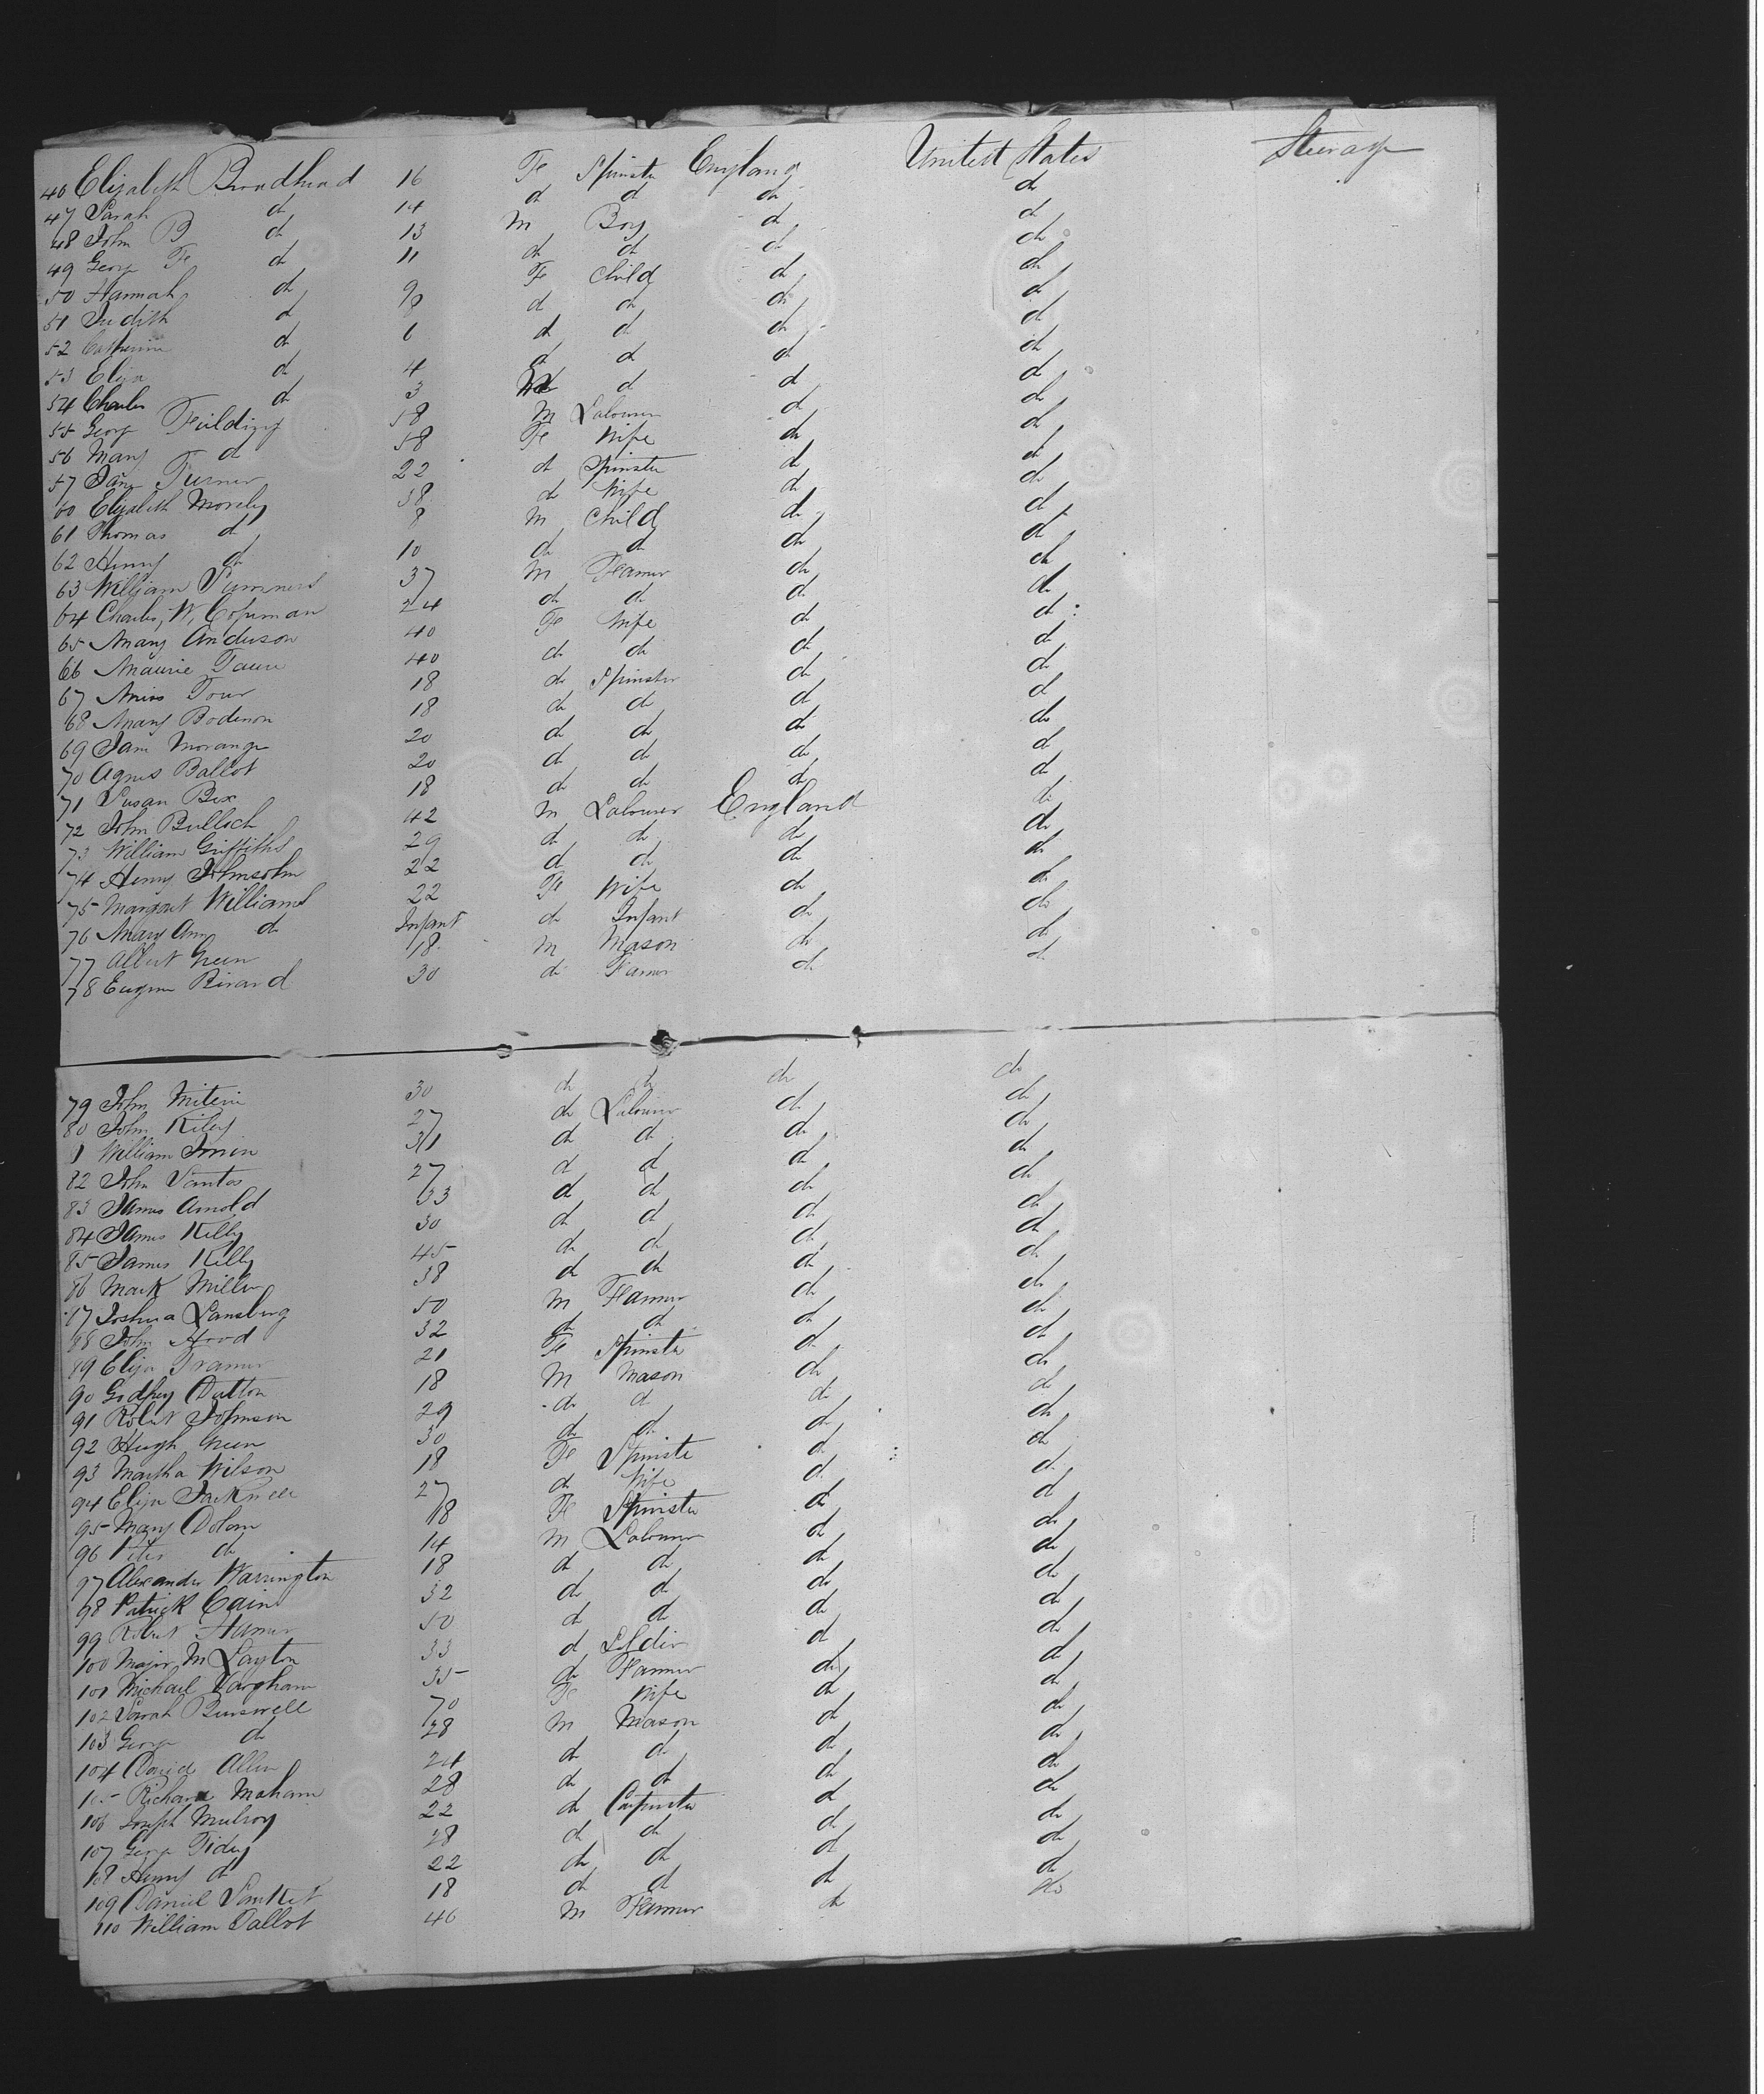 46 Elizabeth Broadhead 16 Fe Spinster England United States Steerage
47 Sarah do 14 do do do do
48 John B do 13 m Boy do do
49 Georg F do 11 do do do do
50 Hannah do 9 Fe Child do do
51 Judith do 8 do do do do
52 Catherine do 6 do do do do
53 Eliza do 4 do do do do
54 Charles do 3 do do do
55 Georg Feilding 58 m Labourer do do
56 Mary do 58 Fe Wife do do
57 Jane Turner 22 do Spinster do do
60 Elizabeth Morely 38 do Wife do do
61 Thomas do 8 m Child do do
62 Henry do 10 do do do do
63 William Summers 37 m Farmer do do
64 Charles W. Copeman 24 do do do do
65 Mary Anderson 40 Fe Wife do do
66 Maurie 40 do do do do
67 Miss Tour 18 do Spinster do do
68 Mary Bodenon 18 do do do do
69 Jane Morange 20 do do do do
70 Agnes Ballot 20 do do do do
71 Susan Bex 18 do do do do
72 John Bulloch 42 m Labourer England do
73 William Griffiths 29 do do do do
74 Henry Johnsohn 22 do do do do
75 Margaret Williams 22 Fe Wife do do
76 Mary Ann do Infant do Infant do do
77 Albert Green 18 m Mason do do
78 Eugene Birard 30 do Farmer do do
79 John 30 do do do do
80 John Kiley 27 do Labourer do do
81 William 31 do do do do
82 John Santos 27 do do do do
83 James Arnold 33 do do do do
84 James Kelly 30 do do do do
85 James Kelly 45 do do do do
86 Mark Miller 38 do do do do
87 Joshua Lansburg 50 m Farmer do do
88 John Hood 32 do do do do
89 Eliza Framer 21 Fe Spinster do do
90 Godfrey Dutton 18 m Mason do do
91 Robert Johnson 29 do do do do
92 Hugh Green 30 do do do do
93 Martha Wilson 18 Fe Spinste do do
94 Eliza 27 do Wife do do
95 Mary Dolan 18 Fe Spinster do do
96 Peter do 14 m Labourer do do
97 Alexander Warrington 18 do do do do
98 Patrick Cain 32 do do do do
99 Robert 50 do do do do
100 Major M Layton 33 do Soldier do do
101 Michael Vargham 35 do Farmer do do
102 Sarah Burswell 70 Fe Wife do do
103 Georg do 38 m Mason do do
104 David Allen 24 do do do do
105 Richard Maham 28 do do do do
106 Joseph Mulroy 22 do Carpenter do do
107 Georg Tidey 28 do do do do
108 Henry do 22 do do do do
109 Daniel 18 do do do do
110 William Tallot 46 m Farmer do do